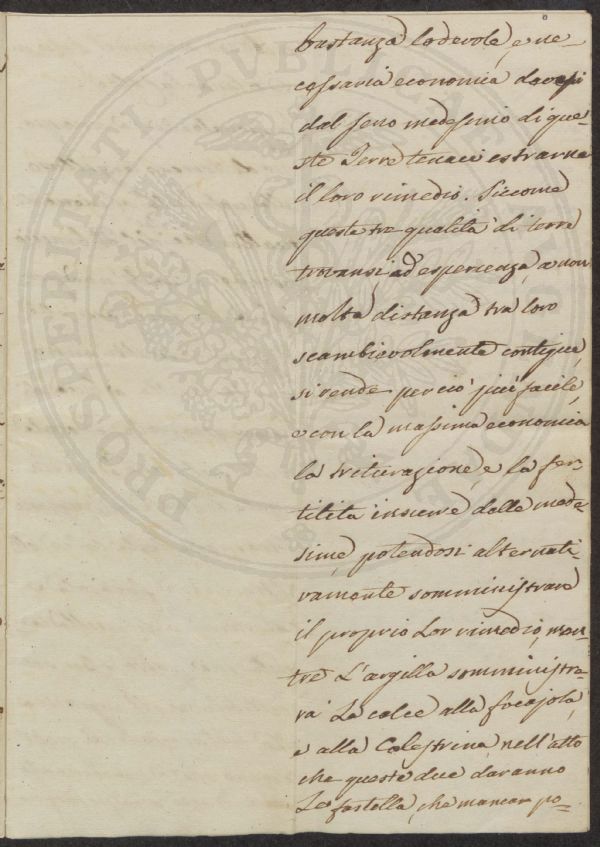 bastanza lodevole, e ne-
cessaria economia dovesi
dal seno medesimo di que-
ste Terre tenaci estrarne
il loro rimedio. Siccome
queste tre qualità di terre
trovansi, ad esperienza, a non
molta distanza tra loro
scambievolmente contigue,
si rende perciò più facile,
e con la massima economia
la triturazione, e la fer-
tilità insieme delle mede-
sime, potendosi alternati-
vamente somministrare
il proprio Lor rimedio, men-
tre L'argilla somministre-
rà La calce alla focajola,
e alla Calestrina, nell'atto
che queste due daranno
Le che mancar po-
PROSPERITATI PVBLICAE